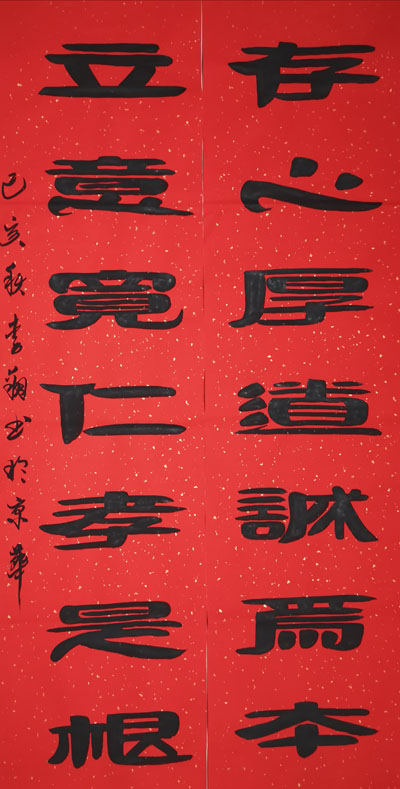 存心厚道誠爲本
立意寬仁孝是根
己亥秋李翔书於京華